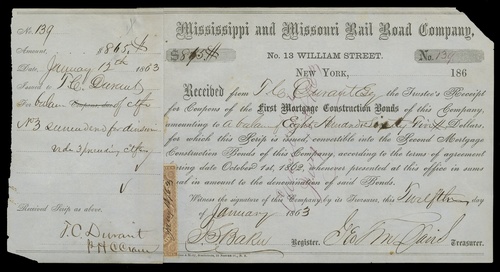 No. 139
Amount, $865.
Date, January 12th 1863
Issued to T. C. Durant
For balance of ctfs
No 3 surrendered for division
Received Scrip as above.
T. C. Durant
Mississippi and Missouri Rail Road Company,
$865
No. 13 WILLIAM STREET.
No. 139
NEW YORK, 186
Received from T. C. Durant Esq the Trustee's Receipt
for Coupons of the First Mortgage Construction Bonds of this Company,
amounting to a balance of Eight Hundred Sixty Five Dollars.
for which this Scrip is issued, convertible into the Second Mortgage
Construction Bonds of this Company, according to the terms of agreement
bearing date October 1st, 1862, whenever presented at this office in sums
equal in amount to the denomination of said Bonds.
Witness the signature of this Company by its Treasurer, this Twelfth day
of January 1863
Baker Register.
Treasurer.